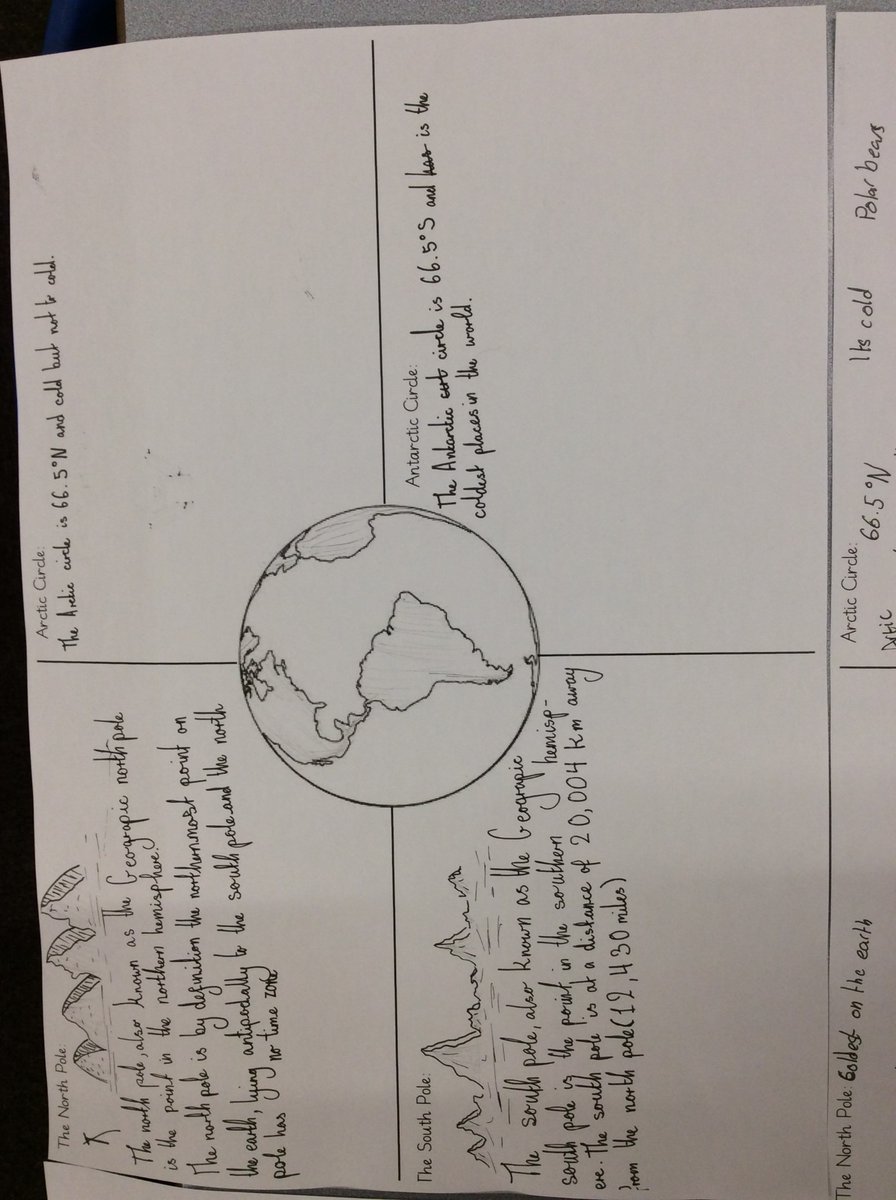 The North Pole:
The north pole, also known as the Geograpic north pole
is the point in the northern hemisphere.
The north pole is by definition the northernmost point on
the earth, lying antipodally to the south pole. and the north
pole has no time zone
Arctic Circle:
The Arctic circle is 66.5°N and cold but not to cold.
The South Pole:
The south pole, also known as the Geograpic
south pole is the point in the southern hemisp-
ere. The south pole is at a distance of 20,004 km away
from the north pole (12,430 miles)
Antarctic Circle:
The Antarctic circle is 66.5°S and has is the
coldest places in the world.
The North Pole: Coldest on the earth
Arctic Circle:
66.5°N
Its cold
Polar bears